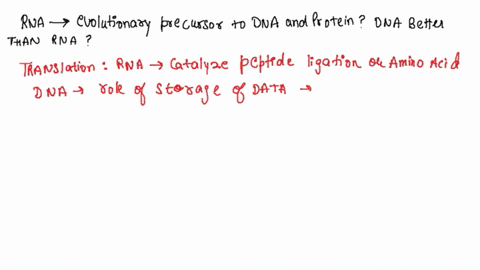 RNA → evolutionary precursor to DNA and Protein? DNA Better
THAN RNA?
TRANSlation: RNA → Catalyze peptide ligation or Amino Acid
DNA → role of storage of DATA →